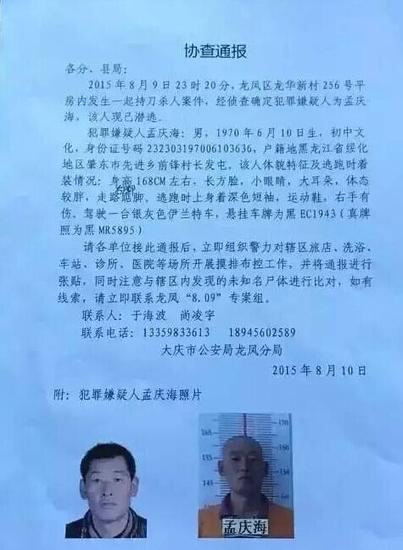 协查通报
各分、县局：
2015年8月9日23时20分，龙凤区龙华新村256号平
房内发生一起持刀杀人案件，经侦查确定犯罪嫌疑人为孟庆
海，该人现已潜逃。
犯罪嫌疑人孟庆海：男，1970年6月10日生，初中文
化，身份证号码232303197006103636，户籍地黑龙江省绥化
地区肇东市先进乡前锋村长发屯。该人体貌特征及逃跑时着
装情况：身高168CM左右，长方脸，小眼睛，大耳朵，体态
较胖，走路跪脚，逃跑时上身着深色短袖，运动鞋，右手有
伤。驾驶一台银灰色伊兰特车，悬挂车牌为黑EC1943（真牌
照为黑MR5895）
请各单位接此通报后，立即组织警力对辖区旅店、洗浴、
车站、诊所、医院等场所开展摸排布控工作，并将通报进行
张贴，同时注意与辖区内发现的未知名尸体进行比对，如有
线索，请立即联系龙凤“8.09”专案组。
联系人：于海波 尚凌宇
联系电话：13359833613 18945602589
大庆市公安局龙凤分局
2015年8月10日
附：犯罪嫌疑人孟庆海照片
孟庆海